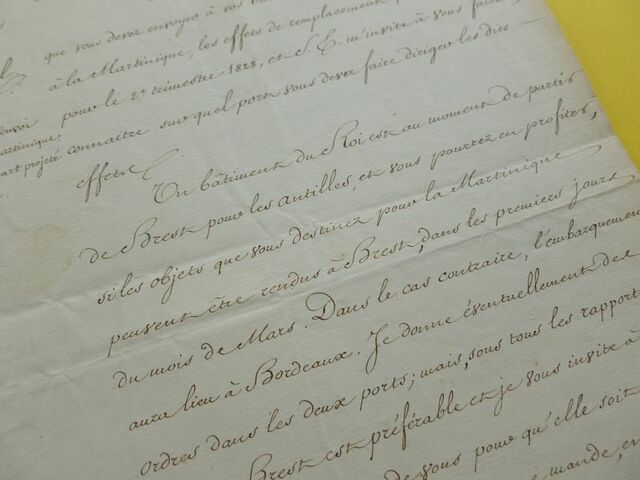 que vous devez envoyer à vos
à la Martinique, les effets de remplacement
pour le 2e trimestre 1828, et S. E. m'invite à vous faire
connaître sur quel port vous devez faire diriger les dits
effets.
envoi
Martinique.
part projeté
Un bâtiment du Roi est au moment de partir
de Brest pour les Antilles, et vous pourrez en profiter,
si les objets que vous destinez pour la Martinique
peuvent être rendus à Brest, dans les premiers jours
du mois de Mars. Dans le cas contraire, l'embarquement
aura lieu à Bordeaux. Je donne éventuellement des
ordres dans les deux ports; mais, sous tous les rapports
Brest est préférable et je vous invite à
de vous pour qu'elle soit
mande, en